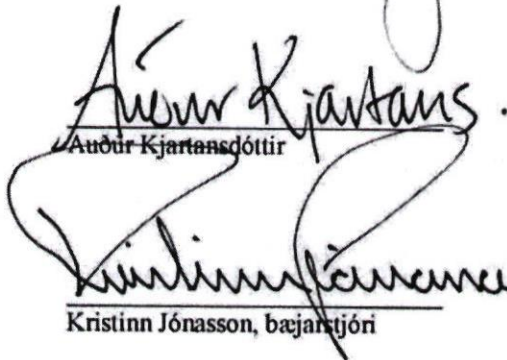 Auður Kjartans.
Auður Kjartansdóttir
Kristinn Jónasson
Kristinn Jónasson, bæjarstjóri